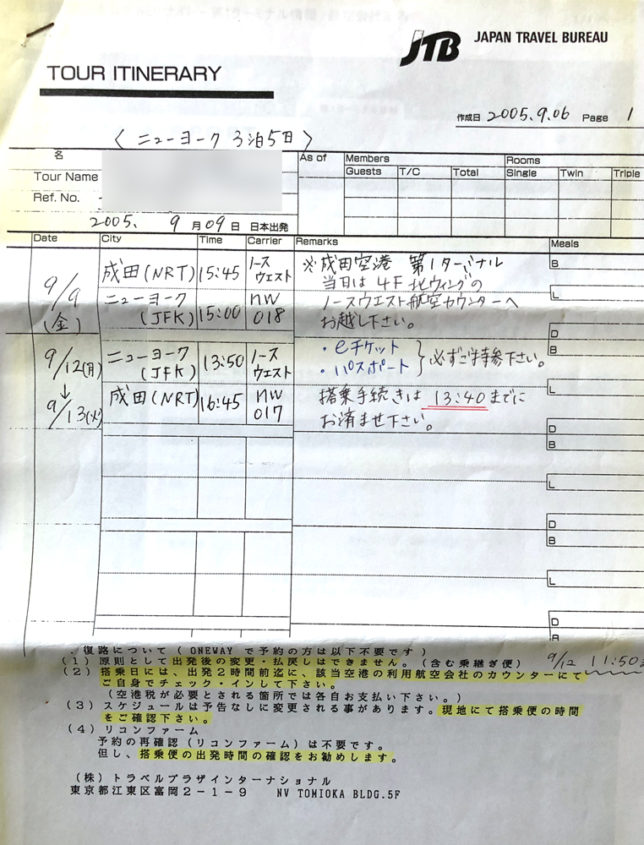 JTB JAPAN TRAVEL BUREAU
TOUR ITINERARY
作成日 2005.9.06 Page 1
〈 ニューヨーク 3泊5日 〉
名
Tour Name
Ref. No.
As of Members Rooms
Guests T/C Total Single Twin Triple
2005. 9 月 09 日 日本出発
Date City Time Carrier Remarks Meals
9/9 (金)
成田(NRT) 15:45 ノースウェスト
ニューヨーク (JFK) 15:00 NW 018
※成田空港 第1ターミナル
当日は 4F 北ウィングの
ノースウエスト航空カウンターへ
お越し下さい。
B
L
D
9/12(月)
↓
9/13(火)
ニューヨーク (JFK) 13:50 ノースウェスト
成田(NRT) 16:45 NW 017
・eチケット
・パスポート } 必ずご持参下さい。
搭乗手続きは 13:40 までに
お済ませ下さい。
B
L
D
B
L
D
B
L
D
B
.復路について ( ONEWAY で予約の方は以下不要です )
(1) 原則として出発後の変更・払戻しはできません。(含む乗継ぎ便)
9/12 11:50
(2) 搭乗日には、出発2時間前迄に、該当空港の利用航空会社のカウンターにて
ご自身でチェック・インして下さい。
(空港税が必要とされる箇所では各自お支払い下さい。)
(3) スケジュールは予告なしに変更される事があります。現地にて搭乗便の時間
をご確認下さい。
(4) リコンファーム
予約の再確認 (リコンファーム) は不要です。
但し、搭乗便の出発時間の確認をお勧めします。
(株) トラベルプラザインターナショナル
東京都江東区富岡2-1-9 NV TOMIOKA BLDG.5F